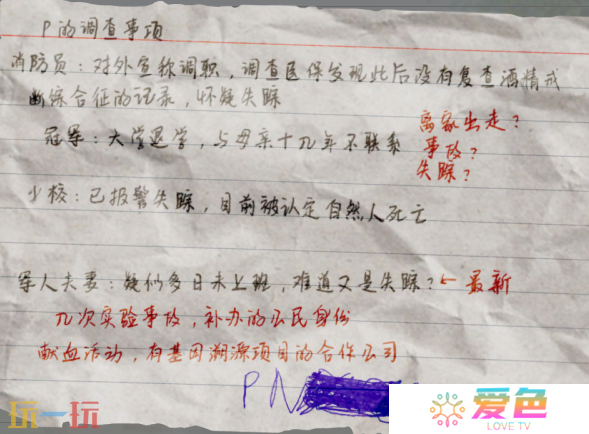 P的调查事项
消防员：对外宣称调职，调查医保发现此后没有复查酒精戒
断综合征的记录，怀疑失踪
冠军：大学退学，与母亲十几年不联系
离家出走？
事故？
失踪？
少校：已报警失踪，目前被认定自然人死亡
军人夫妻：疑似多日未上班，难道又是失踪？←最新
几次实验事故，补办的公民身份
献血活动，有基因溯源项目的合作公司
PN
玩一玩
爱色
LOVE TV